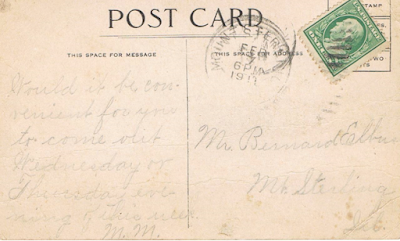 POST CARD
THIS SPACE FOR MESSAGE
THIS SPACE
MOUNT STERLING
FEB
6 PM
191
Would it be con-
venient for you
to come out
Wednesday or
Thursday eve-
ning of this week
M.M.
Mr. Bernard
Mt. Sterling
Ill.